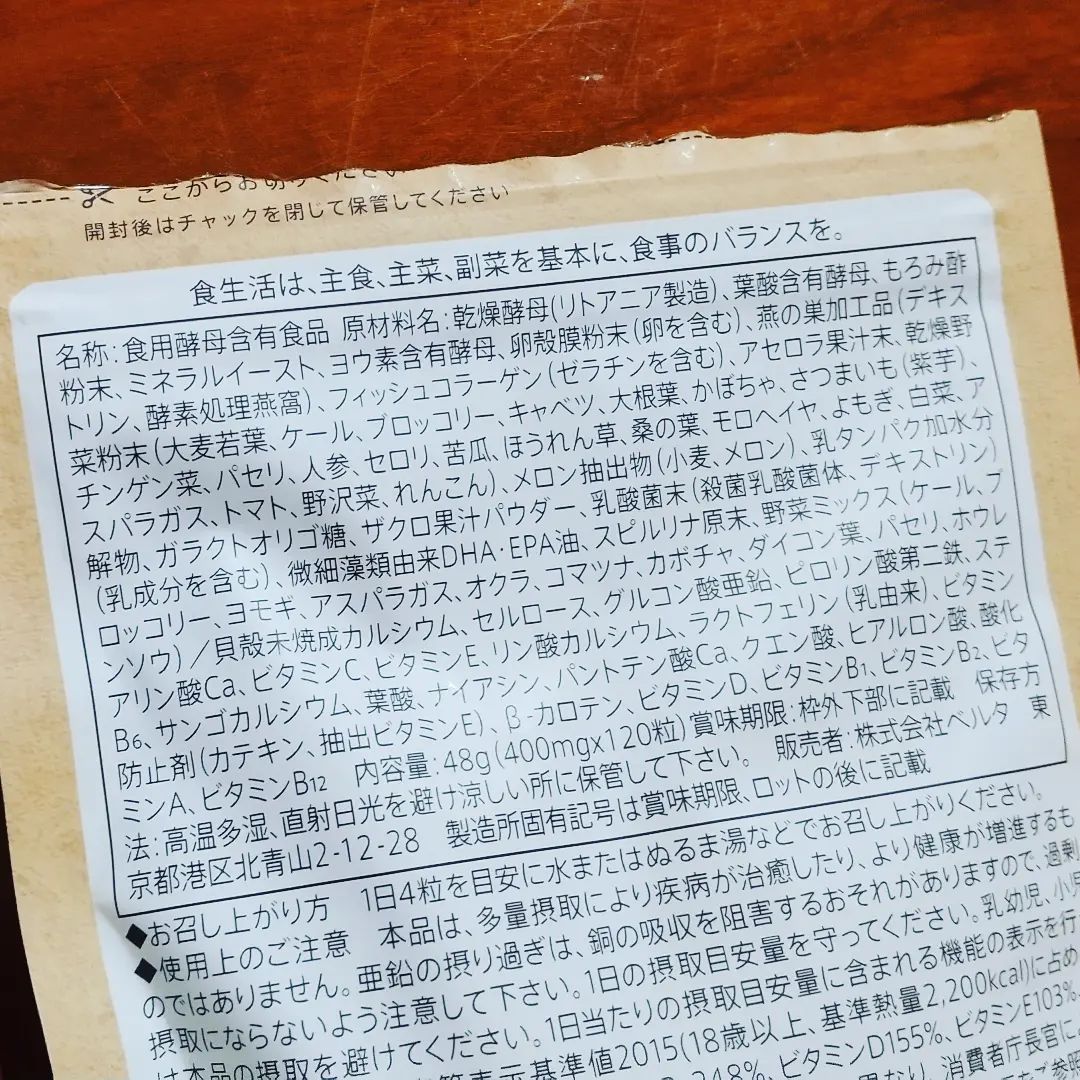 ここからお切りください
開封後はチャックを閉じて保管してください
食生活は、主食、主菜、副菜を基本に、食事のバランスを。
名称:食用酵母含有食品 原材料名:乾燥酵母(リトアニア製造)、葉酸含有酵母、もろみ酢
粉末、ミネラルイースト、ヨウ素含有酵母、卵殻膜粉末(卵を含む)、燕の巣加工品(デキス
トリン、酵素処理燕窩)、フィッシュコラーゲン(ゼラチンを含む)、アセロラ果汁末、乾燥野
菜粉末(大麦若葉、ケール、ブロッコリー、キャベツ、大根葉、かぼちゃ、さつまいも(紫芋)、
チンゲン菜、パセリ、人参、セロリ、苦瓜、ほうれん草、桑の葉、モロヘイヤ、よもぎ、白菜、ア
スパラガス、トマト、野沢菜、れんこん)、メロン抽出物(小麦、メロン)、乳タンパク加水分
解物、ガラクトオリゴ糖、ザクロ果汁パウダー、乳酸菌末(殺菌乳酸菌体、デキストリン)
(乳成分を含む)、微細藻類由来DHA・EPA油、スピルリナ原末、野菜ミックス(ケール、ブ
ロッコリー、ヨモギ、アスパラガス、オクラ、コマツナ、カボチャ、ダイコン葉、パセリ、ホウレ
ンソウ)/貝殻未焼成カルシウム、セルロース、グルコン酸亜鉛、ピロリン酸第二鉄、ステ
アリン酸Ca、ビタミンC、ビタミンE、リン酸カルシウム、ラクトフェリン(乳由来)、ビタミン
B6、サンゴカルシウム、葉酸、ナイアシン、パントテン酸Ca、クエン酸、ヒアルロン酸、酸化
防止剤(カテキン、抽出ビタミンE)、β-カロテン、ビタミンD、ビタミンB1、ビタミンB2、ビタ
ミンA、ビタミンB12 内容量:48g(400mgx120粒)賞味期限:枠外下部に記載 保存方
法:高温多湿、直射日光を避け涼しい所に保管して下さい。 販売者:株式会社ベルタ 東
京都港区北青山2-12-28 製造所固有記号は賞味期限、ロットの後に記載
◆お召し上がり方 1日4粒を目安に水またはぬるま湯などでお召し上がりください。
◆使用上のご注意 本品は、多量摂取により疾病が治癒したり、より健康が増進するも
のではありません。亜鉛の摂り過ぎは、銅の吸収を阻害するおそれがありますので、過剰
摂取にならないよう注意して下さい。1日の摂取目安量を守ってください。乳幼児、小児
は本品の摂取を避けてください。1日当たりの摂取目安量に含まれる機能の表示を行
表示基準値2015(18歳以上、基準熱量2,200kcal)に占め
248%、ビタミンD155%、ビタミンE103%
消費者庁長官に